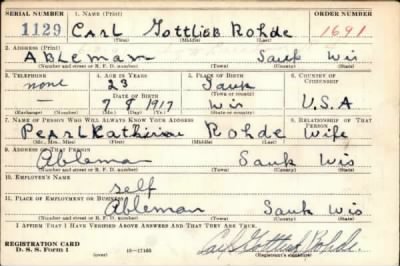 SERIAL NUMBER 1. NAME (Print) ORDER NUMBER
1129 Carl Gottlieb Rohde 1691
(First) (Middle) (Last)
2. ADDRESS (Print)
Ableman Sauk Wis
(Number and street or R. F. D. number) (Town) (County) (State)
3. TELEPHONE 4. AGE IN YEARS 5. PLACE OF BIRTH 6. COUNTRY OF CITIZENSHIP
none 23 Sauk
DATE OF BIRTH (Town or county)
— 7 9 1917 Wis U.S.A
(Mo.) (Day) (Yr.) (State or country)
7. NAME OF PERSON WHO WILL ALWAYS KNOW YOUR ADDRESS 8. RELATIONSHIP OF THAT PERSON
Pearl Katherine Rohde Wife
(Mr., Mrs., Miss) (First) (Middle) (Last)
9. ADDRESS OF THAT PERSON
Ableman Sauk Wis
(Number and street or R. F. D. number) (Town) (County) (State)
10. EMPLOYER'S NAME
self
11. PLACE OF EMPLOYMENT OR BUSINESS
Ableman Sauk Wis
(Number and street or R. F. D. number) (Town) (County) (State)
I AFFIRM THAT I HAVE VERIFIED ABOVE ANSWERS AND THAT THEY ARE TRUE.
REGISTRATION CARD
D. S. S. Form 1 (over) Carl Gottlieb Rohde
(Registrant's signature)